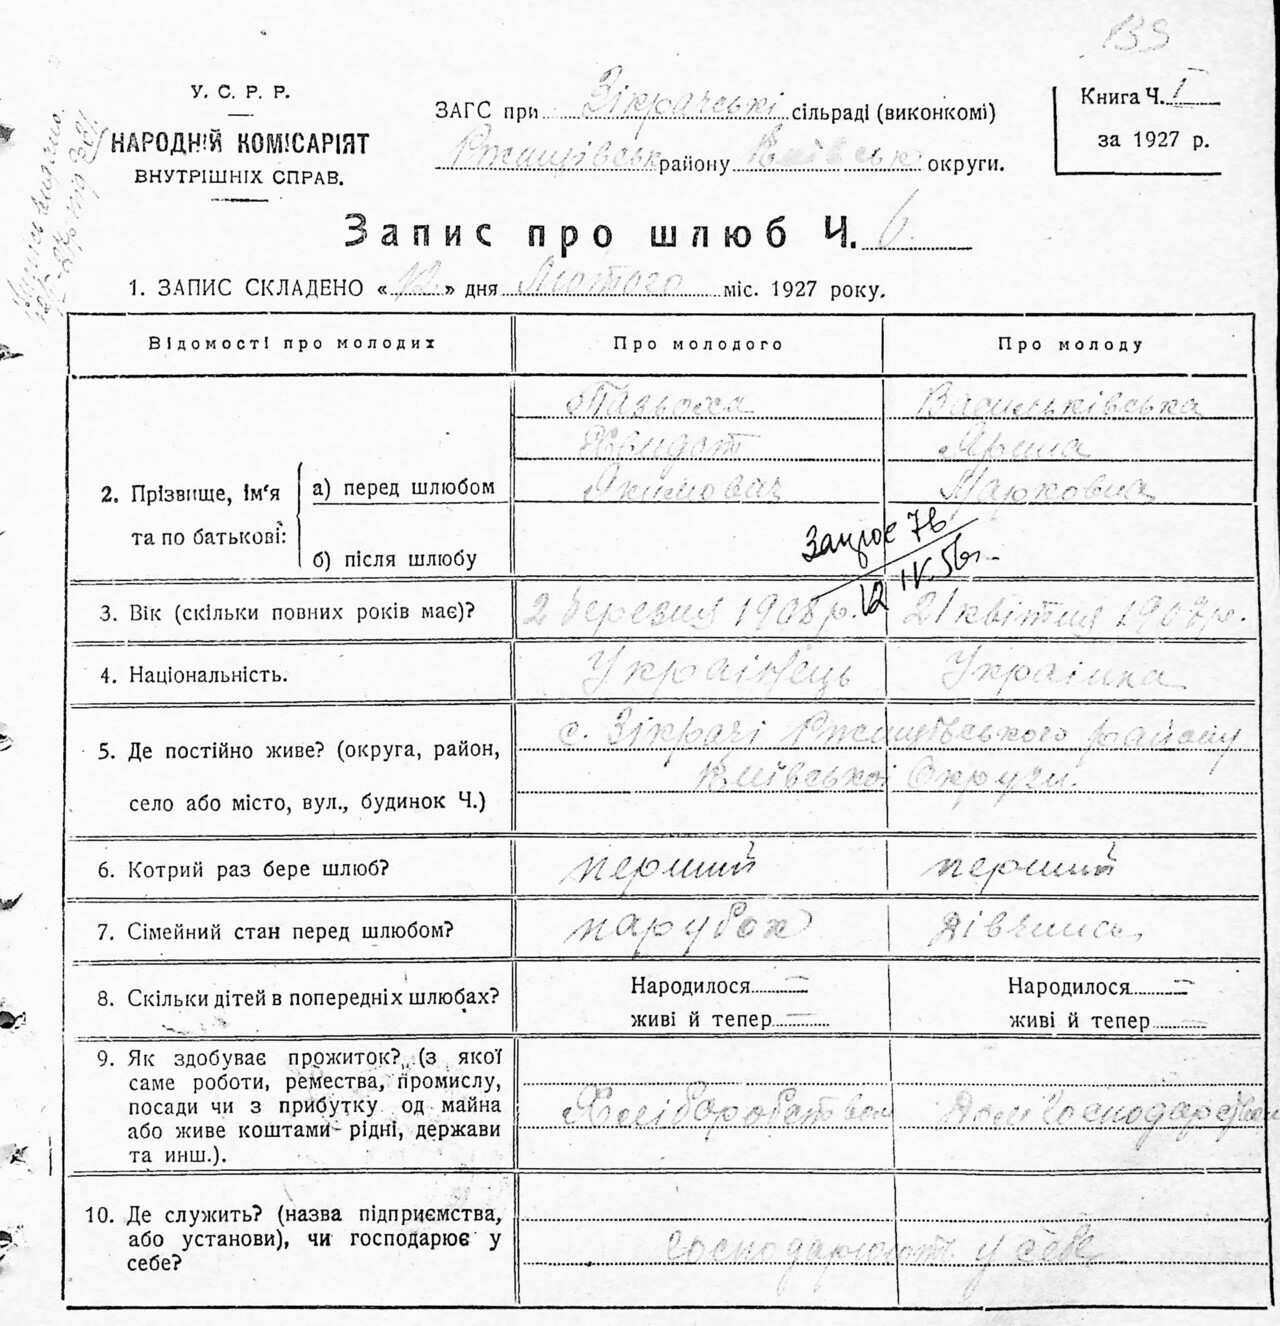 139
У. С. Р. Р.
НАРОДНІЙ КОМІСАРІЯТ
ВНУТРІШНІХ СПРАВ.
ЗАГС при Зікрачські сільраді (виконкомі)
Ржищівськ району Київськ округи.
Книга Ч. I
за 1927 р.
Запис про шлюб Ч. 6
1. ЗАПИС СКЛАДЕНО «12» дня Лютого міс. 1927 року.
Відомості про молодих Про молодого Про молоду
2. Прізвище, ім'я та по батькові:
а) перед шлюбом
Васильківська
Ярина
Якимович Марковна
б) після шлюбу
Запрос 76
12 IV. 56г.
3. Вік (скільки повних років має)? 2 березня 1908 р. 21 квітня 1907 р.
4. Національність. Українець Українка
5. Де постійно живе? (округа, район, село або місто, вул., будинок Ч.)
с. Зікрачі Ржищівського району
Київської Округи.
6. Котрий раз бере шлюб? перший перший
7. Сімейний стан перед шлюбом? парубок
8. Скільки дітей в попередніх шлюбах? Народилося — Народилося —
живі й тепер — живі й тепер —
9. Як здобуває прожиток? (з якої
саме роботи, ремества, промислу,
посади чи з прибутку од майна
або живе коштами рідні, держави
та инш.).
Хліборобством
10. Де служить? (назва підприємства,
або установи), чи господарює у
себе?
господарюють у себе